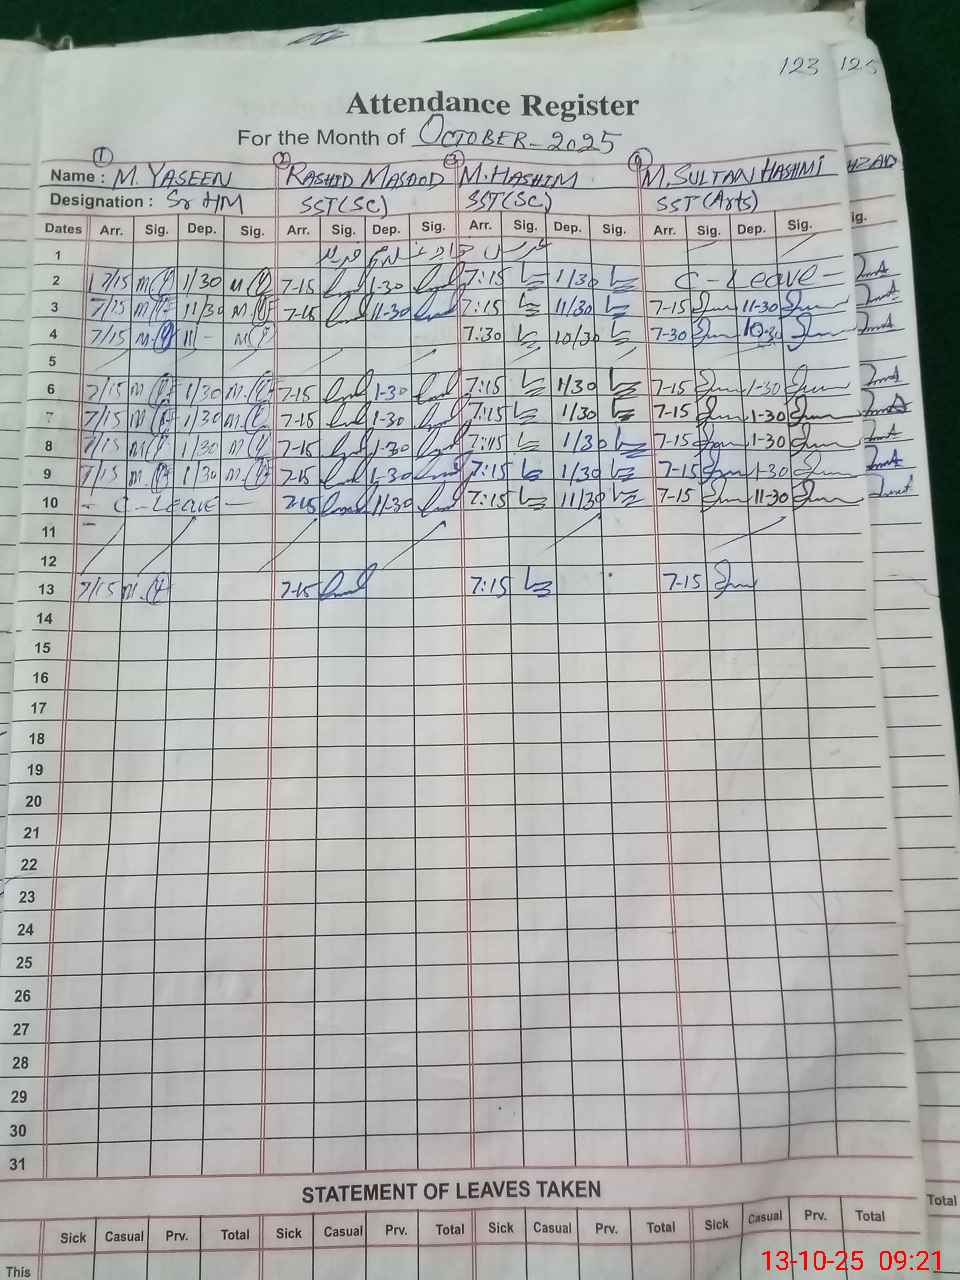 123 125
Attendance Register
For the Month of OCTOBER-2025
1 2 3 4
Name: M. YASEEN RASHID MASOOD M. HASHIM M. SULTAN HASHMI
Designation: Sr HM SST(SC) SST(SC) SST(Arts)
Dates Arr. Sig. Dep. Sig. Arr. Sig. Dep. Sig. Arr. Sig. Dep. Sig. Arr. Sig. Dep. Sig. ig.
1
2 7/15 1/30 7-15 1-30 7:15 1/30 C-Leave-
3 7/15 11/30 7-15 11-30 7:15 11/30 7-15 11-30
4 7/15 11- 7:30 10/30 7-30 10-30
5
6 7/15 1/30 7-15 1-30 7:15 1/30 7-15 1-30
7 7/15 1/30 7-15 1-30 7:15 1/30 7-15 1-30
8 7/15 1/30 7-15 1-30 7:15 1/30 7-15 1-30
9 7/15 1/30 7-15 1-30 7:15 1/30 7-15 1-30
10 - C-LEAVE - 7-15 11-30 7:15 11/30 7-15 11-30
11
12
13 7/15 7-15 7:15 7-15
14
15
16
17
18
19
20
21
22
23
24
25
26
27
28
29
30
31
STATEMENT OF LEAVES TAKEN
Sick Casual Prv. Total Sick Casual Prv. Total Sick Casual Prv. Total Sick Casual Prv. Total Total
This
13-10-25 09:21